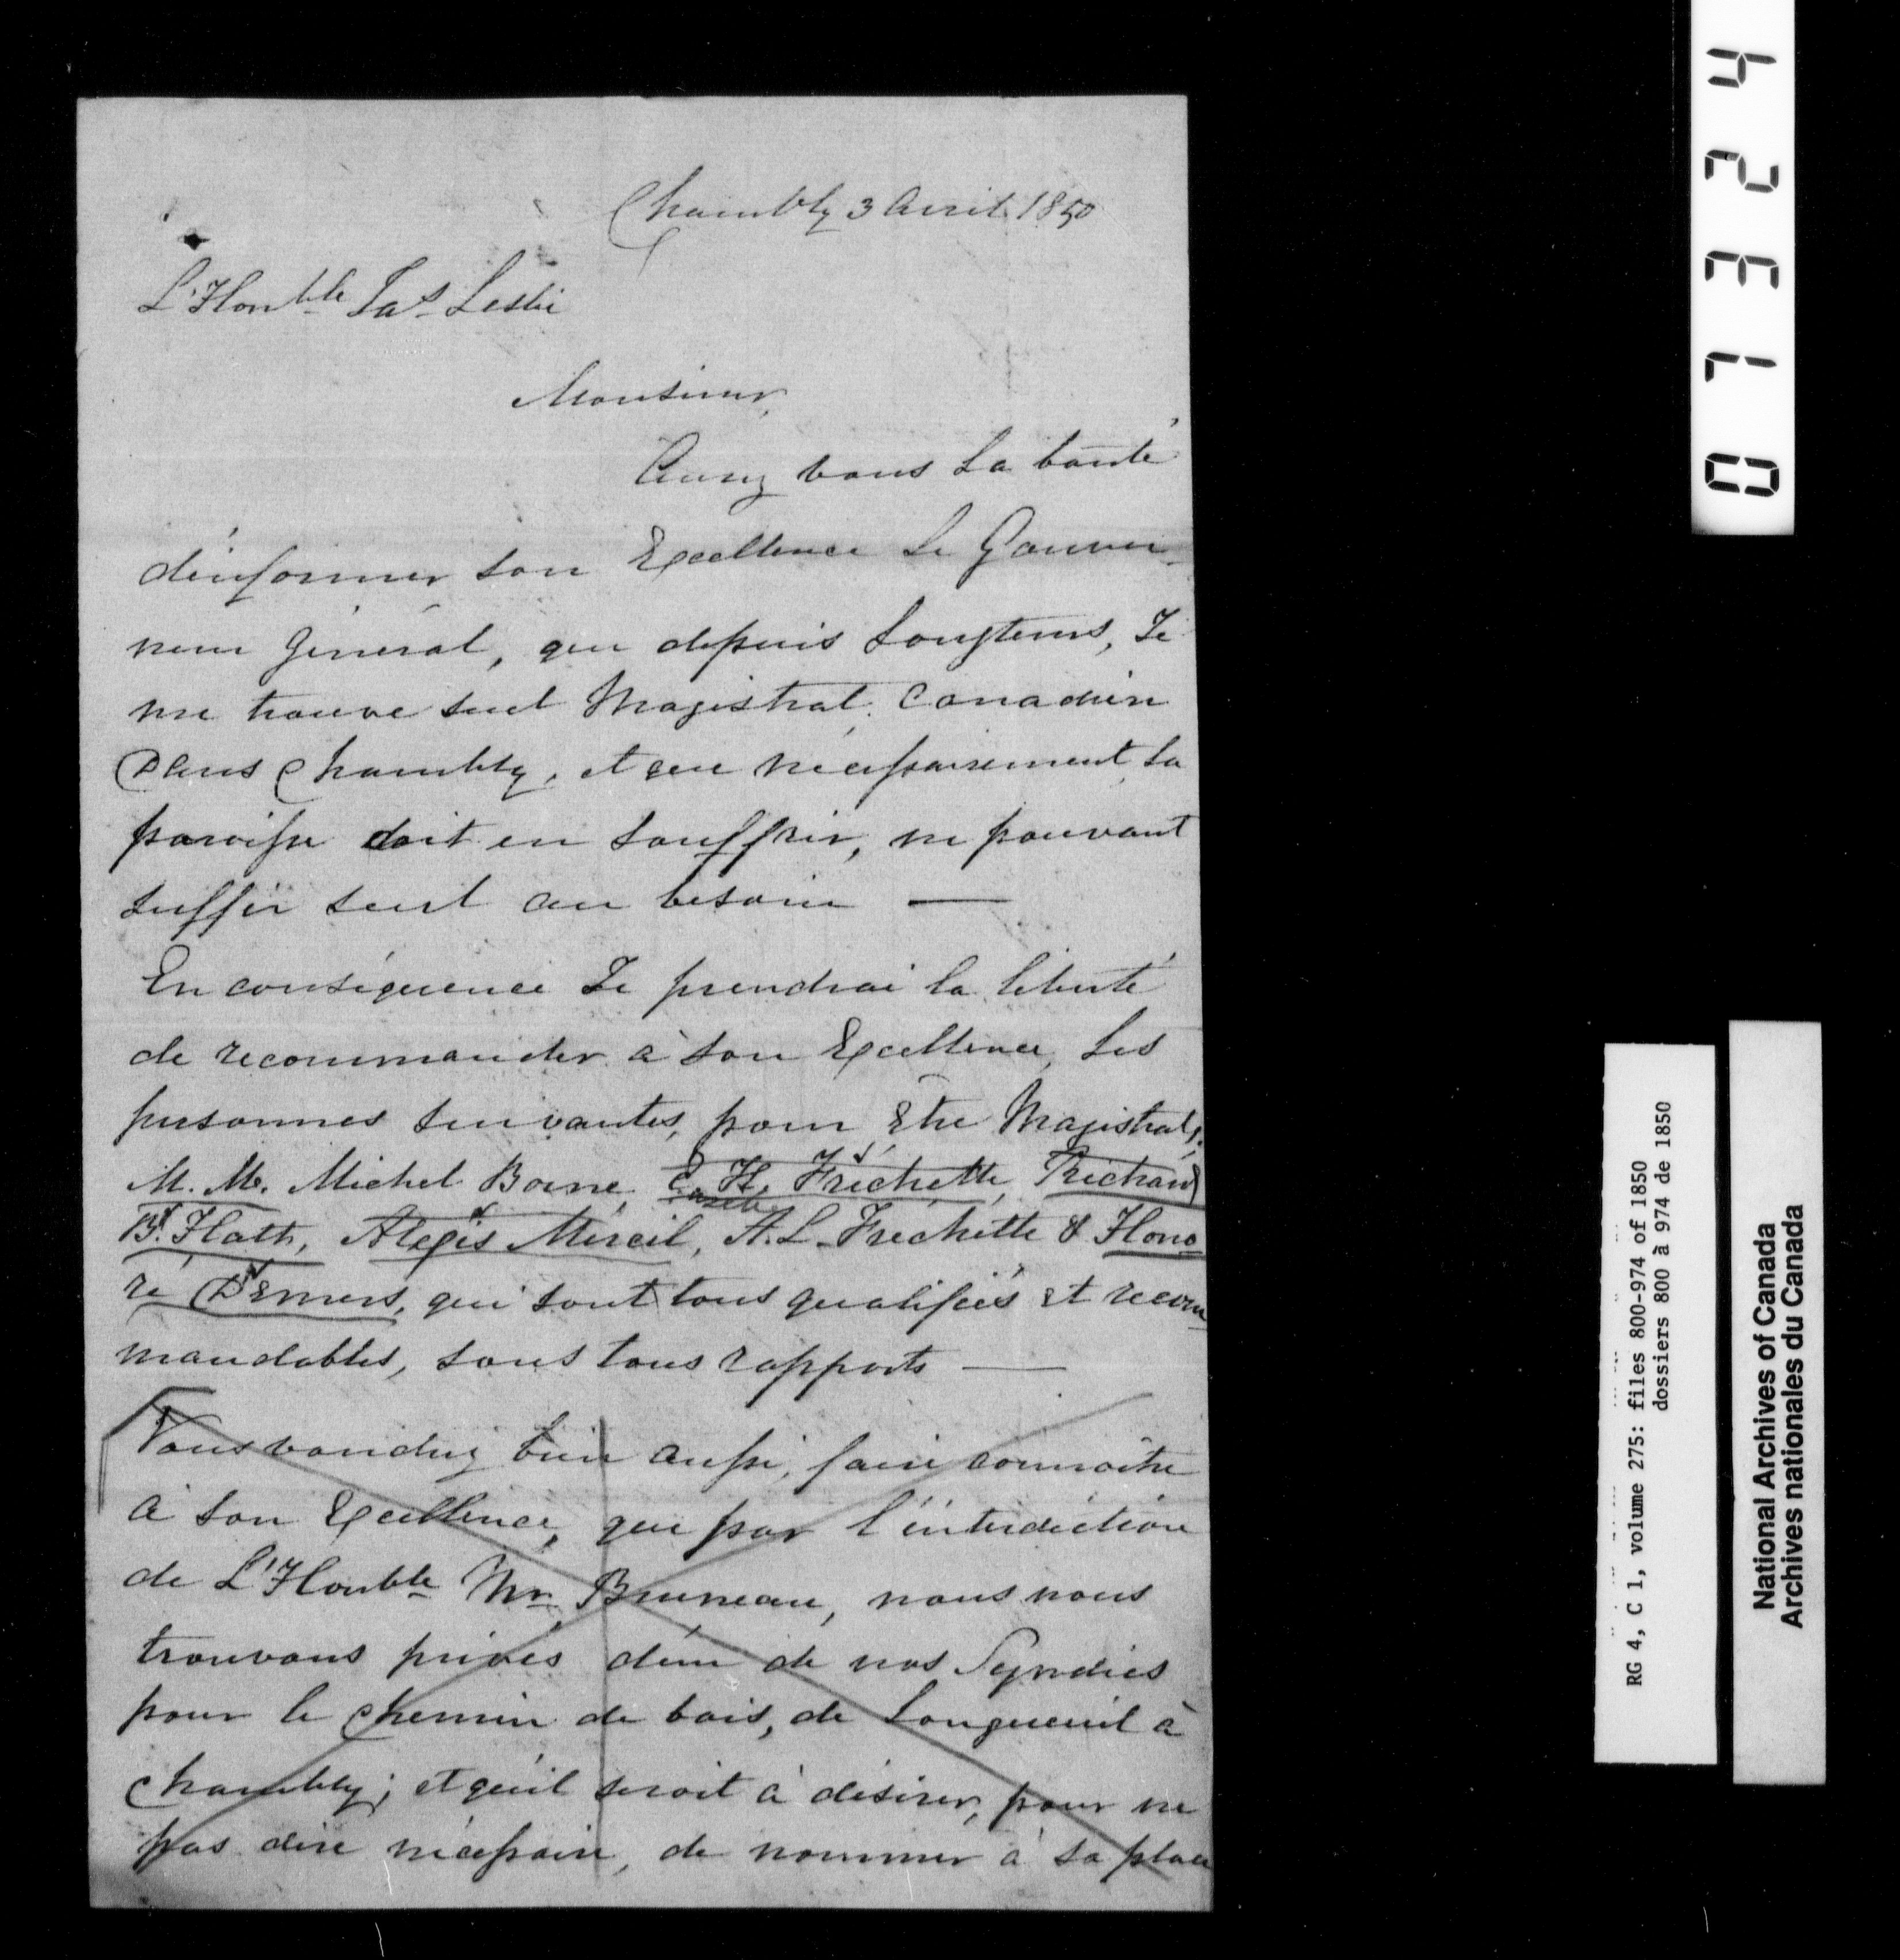 Chambly 3 Avril 1850
L'Honble Jas Leslie
Monsieur,
Aurez vous la bonté
d'informer son Excellence Le Gouver-
neur Général, que depuis Longtems, Je
me trouve seul Magistrat Canadien
Dans Chambly, et que nécessairement la
paroisse doit en souffrir, ne pouvant
suffir seul au besoin —
En conséquence Je prendrai la liberté
de recommander à son Excellence, Les
personnes suivantes, pour Etre Magistrats,
M. M. Michel Borne, E. H. Fréchette, Richard
B. Hatt, Alexis Merceil, A. L. Frechette & Hono-
ré Demers, qui sont tous qualifiés et recom-
mandables, sous tous rapports —
Vous voudrez bien aussi, faire connoitre
à son Excellence, que par l'interdiction
de L'Honble Mr Bruneau, nous nous
trouvons privés d'un de nos Syndics
pour le chemin de bois, de Longueuil à
Chambly; et qu'il seroit à désirer, pour ne
pas dire nécessaire, de nommer à sa place
07324
RG 4, C 1, volume 275: files 800-974 of 1850
dossiers 800 à 974 de 1850
National Archives of Canada
Archives nationales du Canada